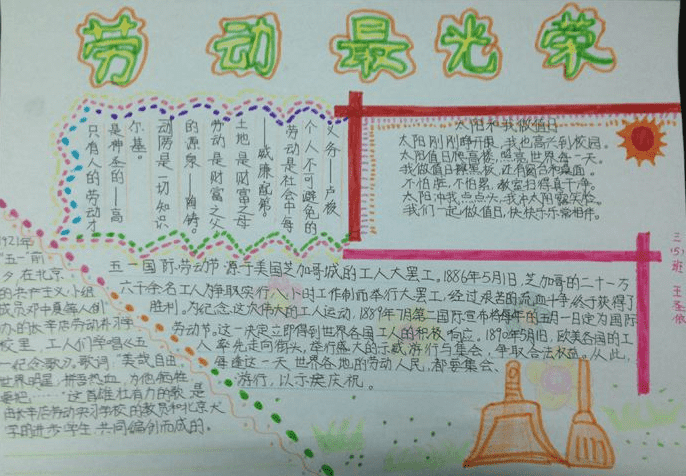 劳动最光荣
只有人的劳动才
是神圣的——高
尔基。
动劳是一切知识
的源泉——陶铸。
劳动是财富之父
土地是财富之母
——威廉配第。
劳动是社会中每
个人不可避免的
义务——卢梭
太阳和我做值日
太阳刚刚睁开眼,我也高兴到校园。
太阳值日爬高楼,照亮世界每一天。
我做值日擦黑板,还有窗台和桌面。
不怕脏,不怕累,教室扫得真干净。
太阳冲我点点头,我冲太阳露笑脸。
我们一起做值日,快快乐乐常相伴。
三(5)班 王圣依
五一国际劳动节源于美国芝加哥城的工人大罢工。1886年5月1日,芝加哥的二十一万
六千余名工人为争取实行八小时工作制而举行大罢工,经过艰苦的流血斗争,终于获得了
胜利。为纪念这次伟大的工人运动,1889年7月第二国际宣布将每年的五月一日定为国际
劳动节。这一决定立即得到世界各国工人的积极响应。1890年5月1日,欧美各国的工
人率先走向街头,举行盛大的示威游行与集会,争取合法权益。从此,
每逢这一天世界各地的劳动人民都要集会、
游行,以示庆祝。
1921年
“五一”前
夕,在北京
的共产主义小组
成员邓中夏等人创
办的长辛店劳动补习学
校里,工人们学唱《五
一纪念歌》。歌词:“美哉自由,
世界明星,拼吾热血,为他牺牲
要把……”这首雄壮有力的歌是
由长辛店劳动实习学校的教员和北京大
学的进步学生共同编创而成的。